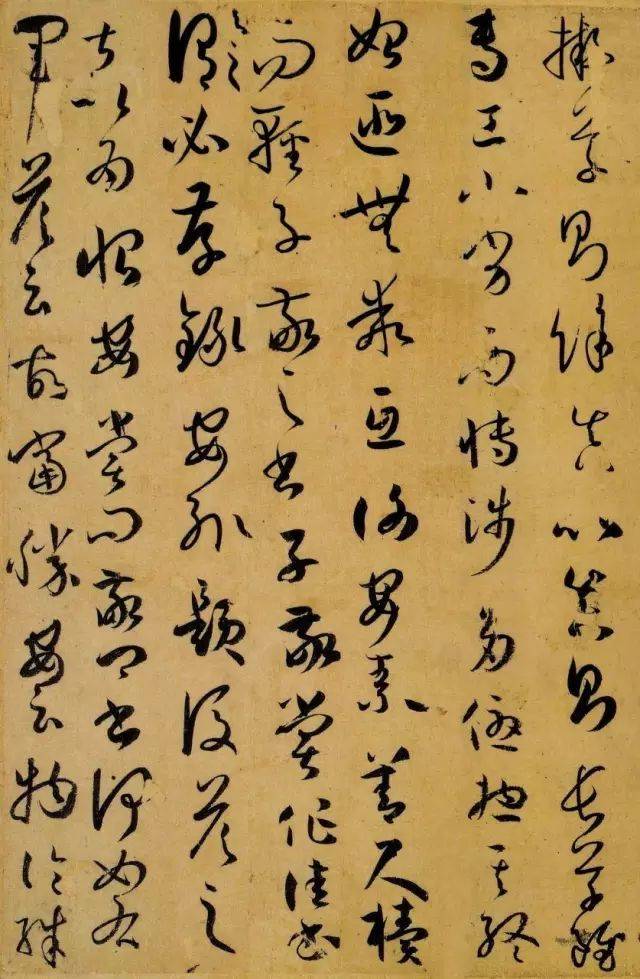 擬草則餘真比真則長草雖
專工小劣而博涉多優揔其終
始匪無乖互謝安素善尺牘
而輕子敬之書子敬嘗作佳書
與之謂必存錄安輒題後答之
甚以為恨安嘗問敬卿書何如右
軍答云故當勝安云物論殊